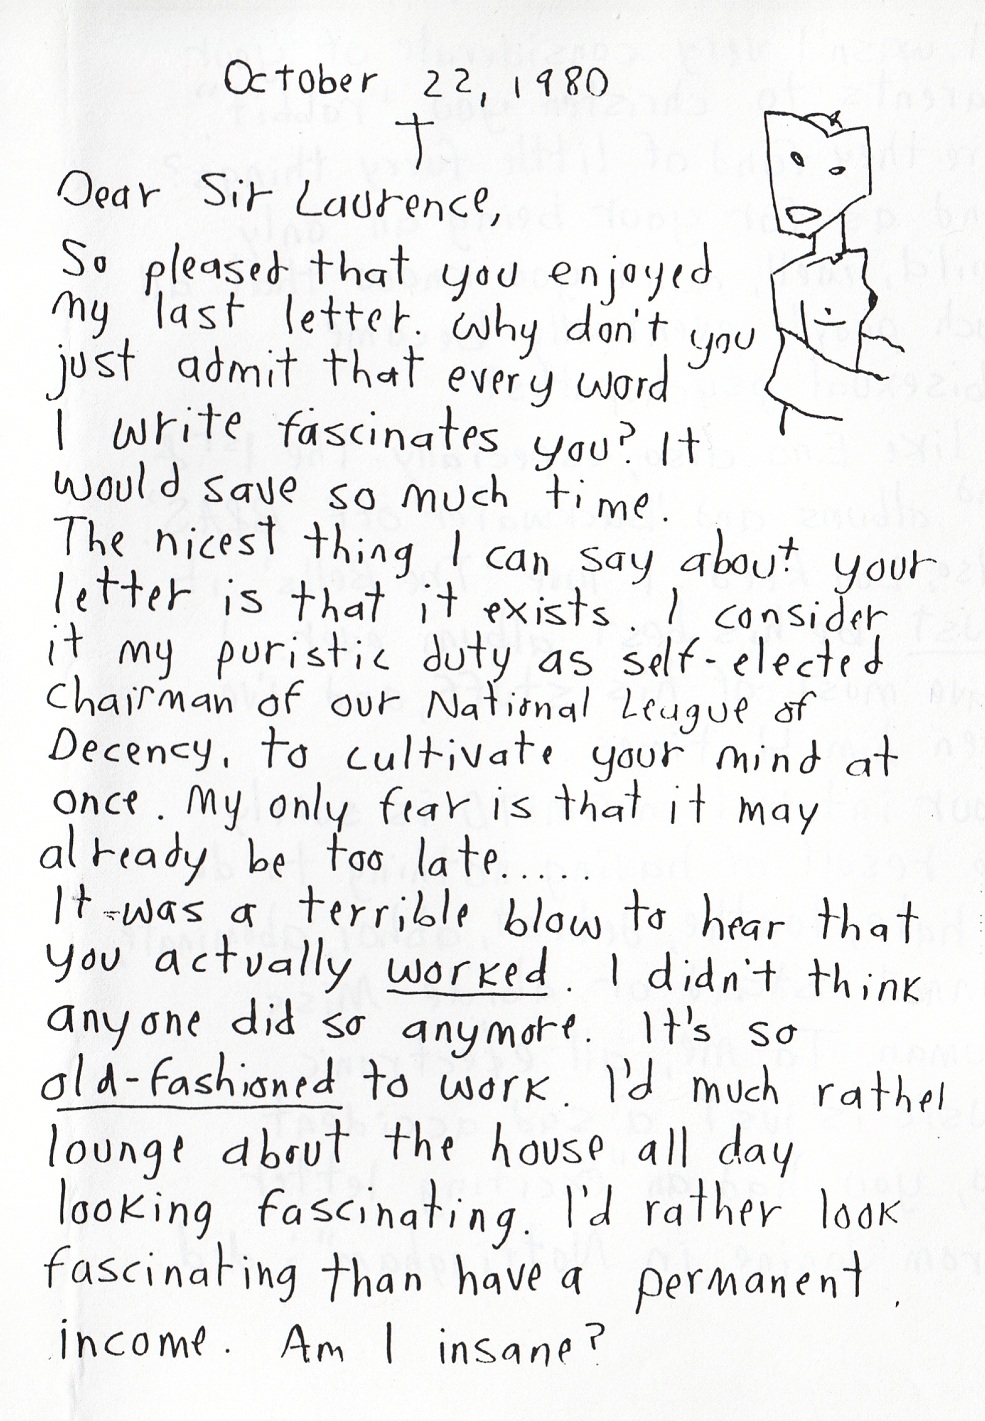 October 22, 1980
Dear Sir Laurence,
So pleased that you enjoyed
my last letter. Why don't you
just admit that every word
I write fascinates you? It
would save so much time.
The nicest thing I can say about your
letter is that it exists. I consider
it my puristic duty as self-elected
chairman of our National League of
Decency, to cultivate your mind at
once. My only fear is that it may
already be too late.....
It was a terrible blow to hear that
you actually worked. I didn't think
anyone did so anymore. It's so
old-fashioned to work. I'd much rather
lounge about the house all day
looking fascinating. I'd rather look
fascinating than have a permanent
income. Am I insane?